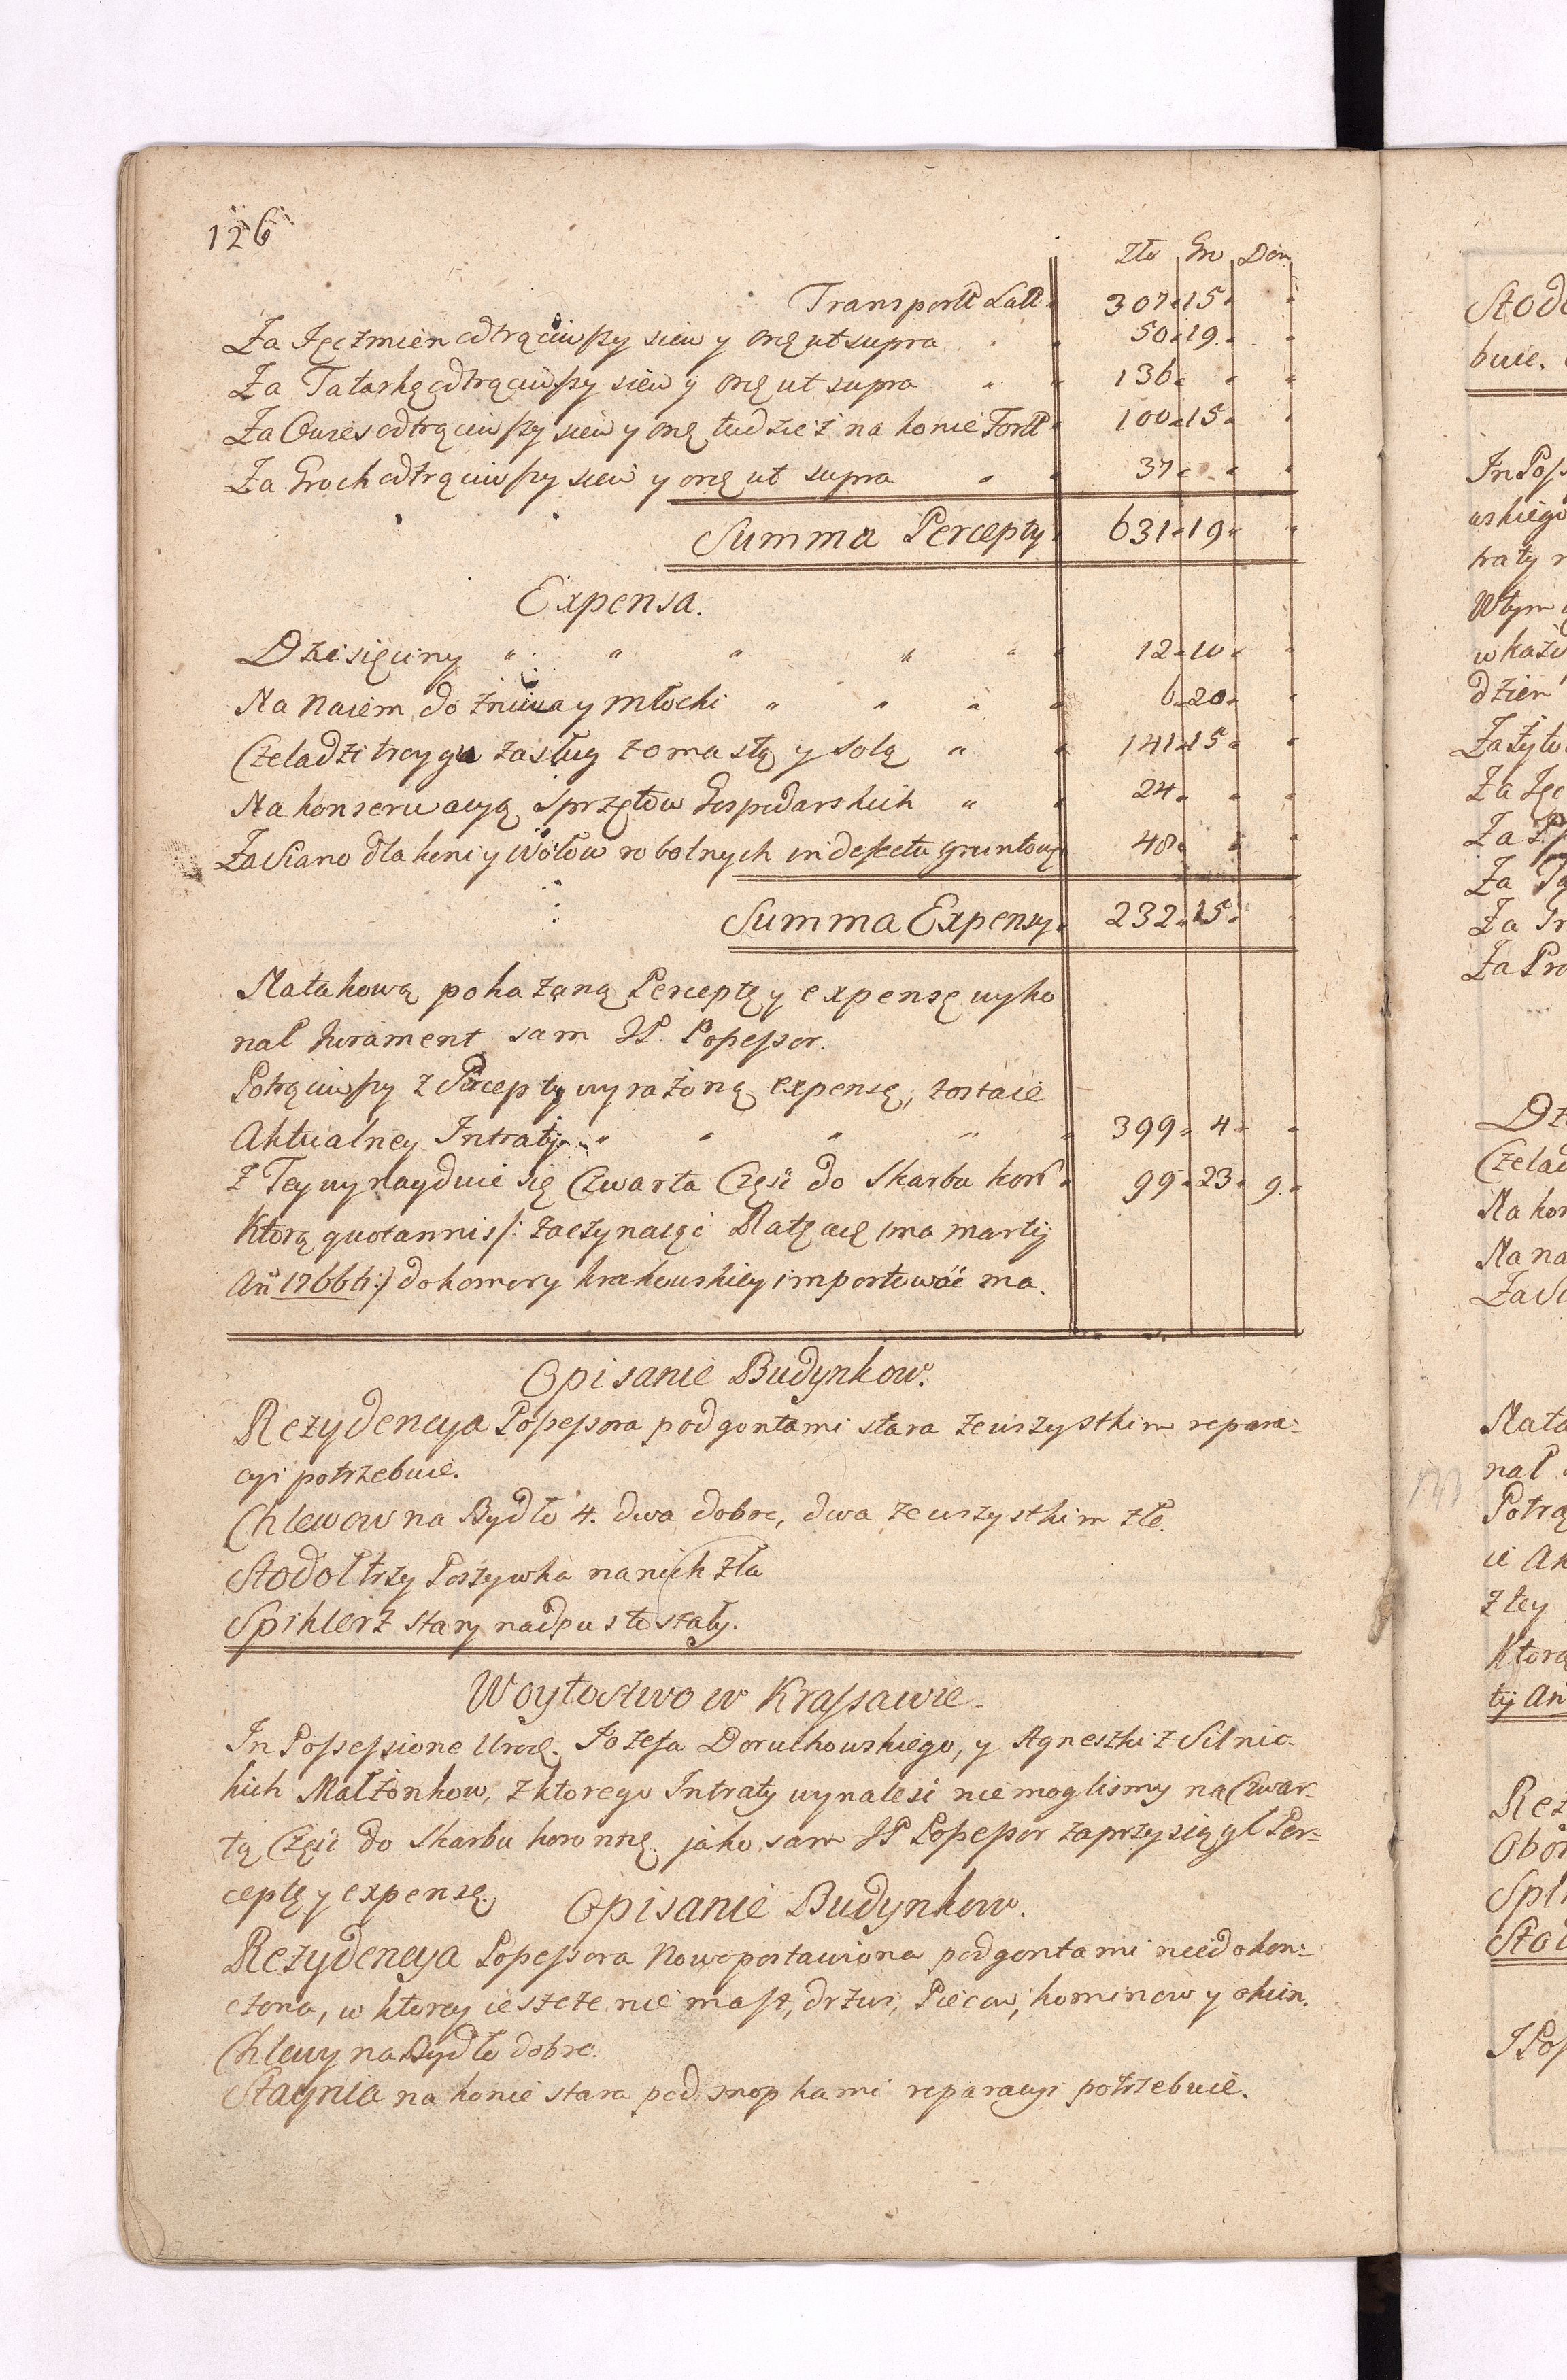 126
Zło Gro Den
Transport Lat. 307 15
Za Jęczmien odtrąciwszy siew y orę ut supra 50 19
Za Tatarkę odtrąciwszy siew y orę ut supra 136
Za Owies odtrąciwszy siew y orę tudzież na konie 100 15
Za Groch odtrąciwszy siew y orę ut supra 37
Summa Percepty 631 19
Expensa.
Dziesięciny 12 10
Na Naiem do żniwa y Młocki 6 20
Czeladzi troyga zasług z omastą y solą 141 15
Na konserwacyą Sprzętow Gospodarskich 24
Za Siano dla koni y Wołow robotnych in defectu gruntowy 48
Summa Expensy 232 15
Na takową pokazaną Perceptę y expensę wyko
nał Jurament sam JP. Possessor.
Potrąciwszy z Percepty wyrażoną expensę, zostaie
Aktualney Intraty 399 4
Z Tey wynayduie się Czwarta Część do Skarbu kor 99 23 9
Ktorą quotannis /: zaczynaiąc Ratę a 1ma martij
Ań 1766ti :/ do komory krakowskiey importować ma.
Opisanie Budynkow.
Rezydencya Possessora pod gontami stara ze wszystkim repara=
cyi potrzebuie.
Chlewow na Bydło 4. dwa dobre, dwa ze wszystkim złe.
Stodoł trzy Poszywka na nich zła
Spiklerz stary nadpustoszały.
Woytostwo w Krassawie.
In Possessione Urodz. Jozefa Doruchowskiego, y Agneszki z Silnic
kich Małżonkow, z ktorego Intraty wynalesć nie moglismy na Czwar-
tą Część do Skarbu koronnę. jako sam JP Possessor zaprzysiągł Per=
ceptę y expensę.
Opisanie Budynkow.
Rezydencya Possessora Nowo postawiona pod gontami niedokon=
czona, w ktorey ieszcze nie masz, drzwi, Piecow, kominow y okien.
Chlewy na Bydło dobre.
Staynia na konie stara pod snopkami reparacyi potrzebuie.